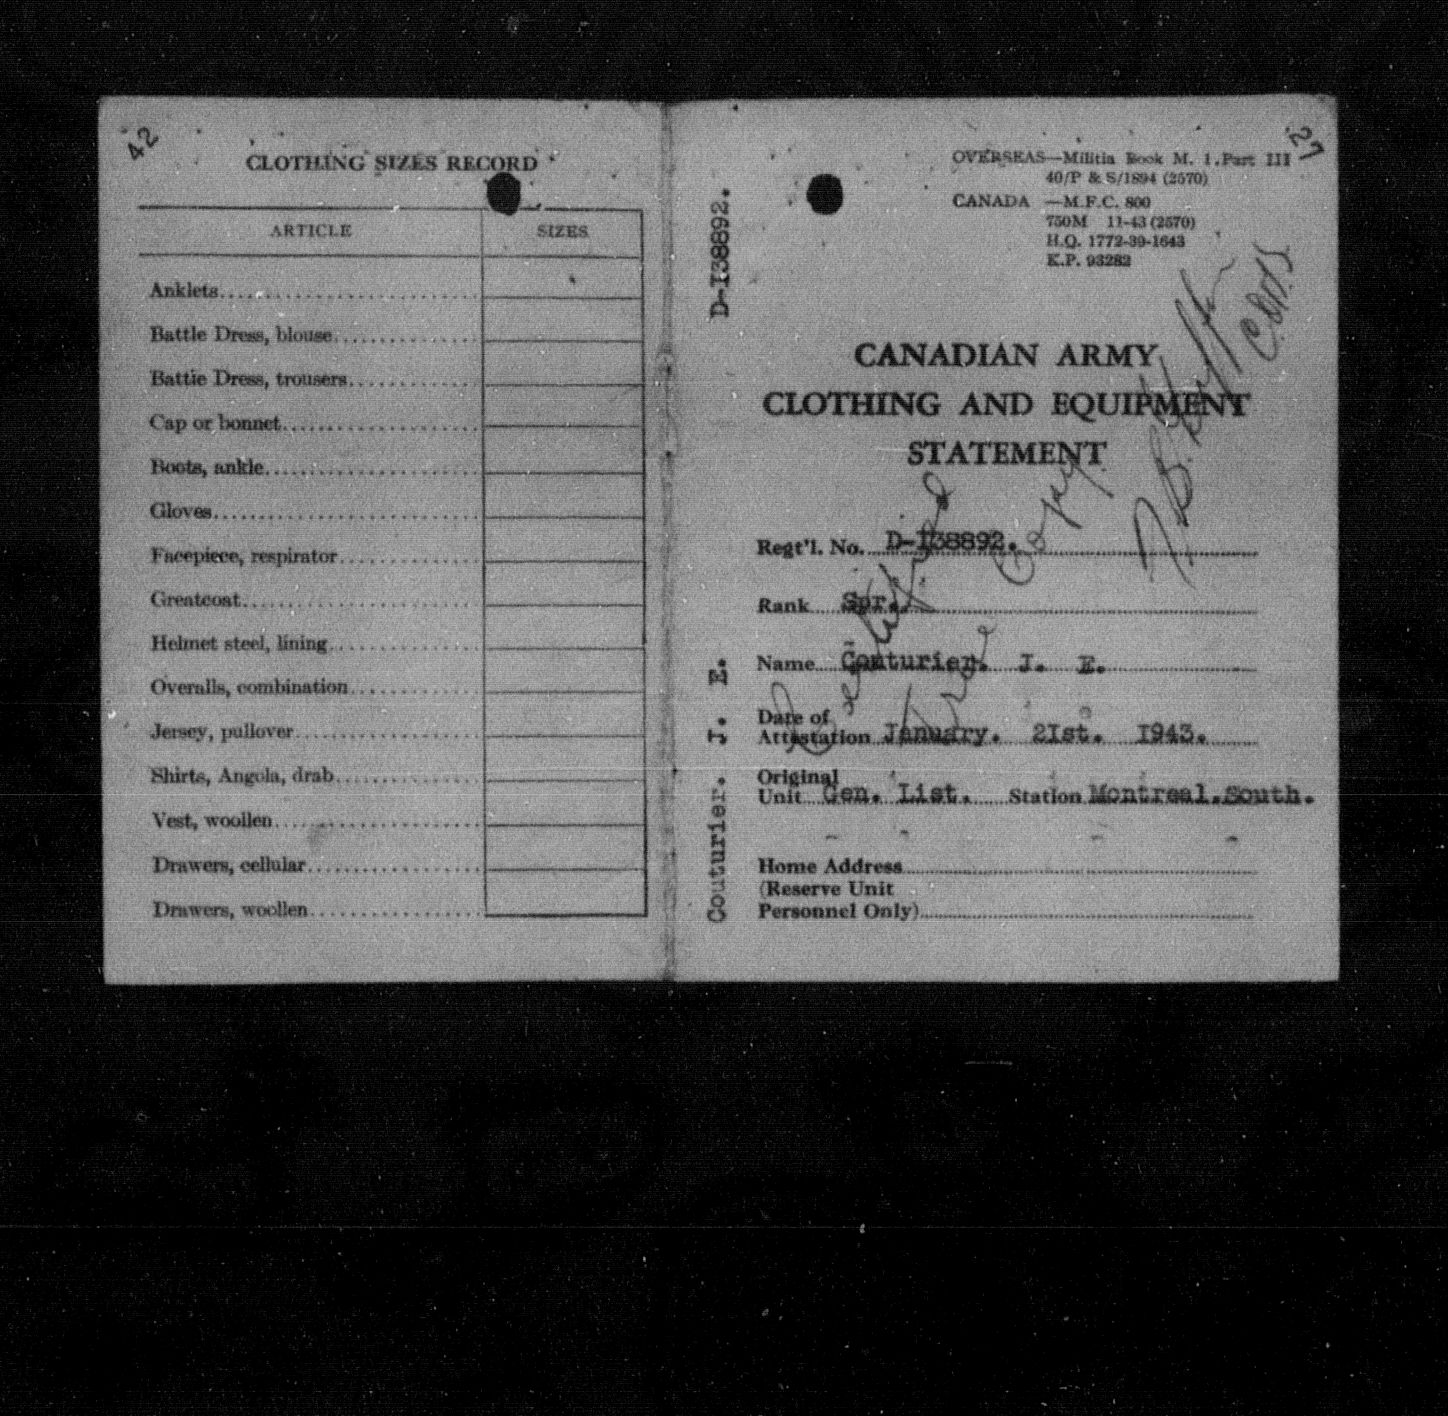 42
CLOTHING SIZES RECORD
ARTICLE SIZES
Anklets
Battle Dress, blouse
Battle Dress, trousers
Cap or bonnet
Boots, ankle
Gloves
Facepiece, respirator
Greatcoat
Helmet steel, lining
Overalls, combination
Jersey, pullover
Shirts, Angola, drab
Vest, woollen
Drawers, cellular
Drawers, woollen
D-I38892.
Couturier. J. E.
27
OVERSEAS—Militia Book M. 1, Part III
40/P & S/1894 (2570)
CANADA —M.F.C. 800
750M 11-43 (2570)
H.Q. 1772-39-1643
K.P. 93282
CANADIAN ARMY
CLOTHING AND EQUIPMENT
STATEMENT
Certified
True Copy.
Regt'l. No. D-I38892.
Rank Spr.
Name Couturier. J. E.
Date of
Attestation January. 2Ist. I943.
Original
Unit Gen. List. Station Montreal.South.
Home Address
(Reserve Unit
Personnel Only)